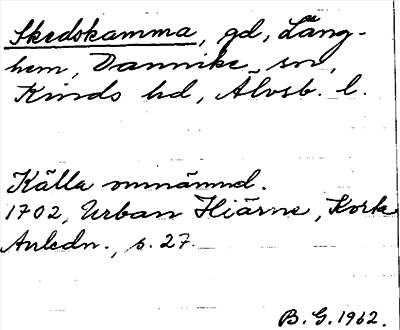 Skedskamma, gd, Läng-
hem, Dannike sn,
Kinds hd, Älvsb. l.
Källa omnämnd.
1702, Urban Hiärne, Korta
Anledn., s. 27.
B. G. 1962.